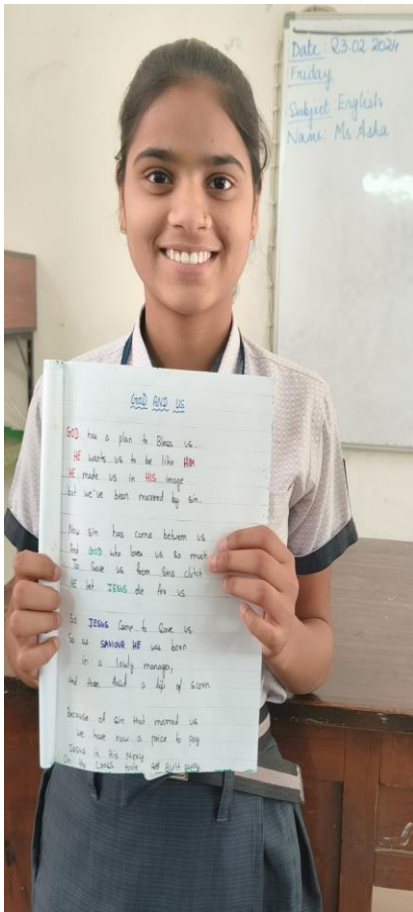 Date: 23.02.2024
Friday
Subject: English
Name: Ms Asha
GOD AND US
GOD has a plan to Bless us.
HE wants us to be like HIM
HE made us in HIS image
but we've been marred by sin.
Now sin has come between us
And GOD who loves us so much
To save us from sins clutch
HE let JESUS die for us
So JESUS came to save us.
So as SAVIOUR HE was born
in a lowly manager,
and there lived a life of scorn
Because of sin that marred us
we have now a price to pay
Jesus in His Mercy
On the CROSS took guilt away